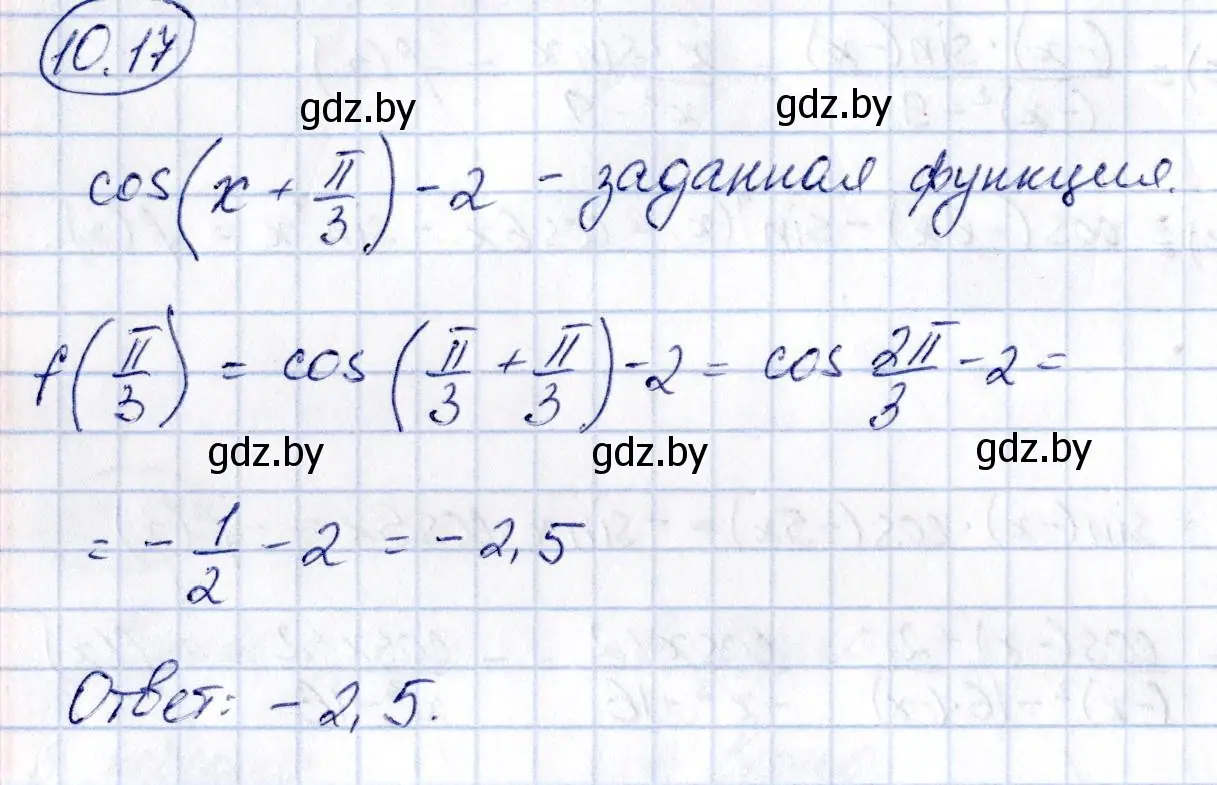 10.17
gdz.by gdz.by
cos(x + π/3) - 2 - заданная функция.
f(π/3) = cos(π/3 + π/3) - 2 = cos 2π/3 - 2 =
gdz.by gdz.by gdz.by
= - 1/2 - 2 = - 2,5
Ответ: - 2,5.